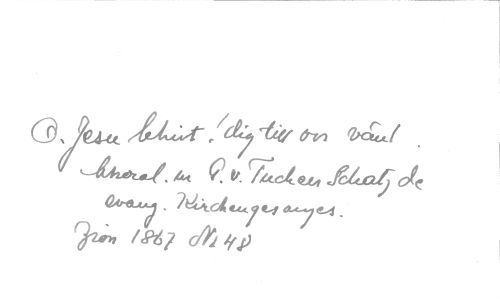 O. Jesu Christ! dig till oss vänd.
Choral. ur G. v. Tucher Schatz de
evang. Kirchengesanges.
Zion 1867 No 48